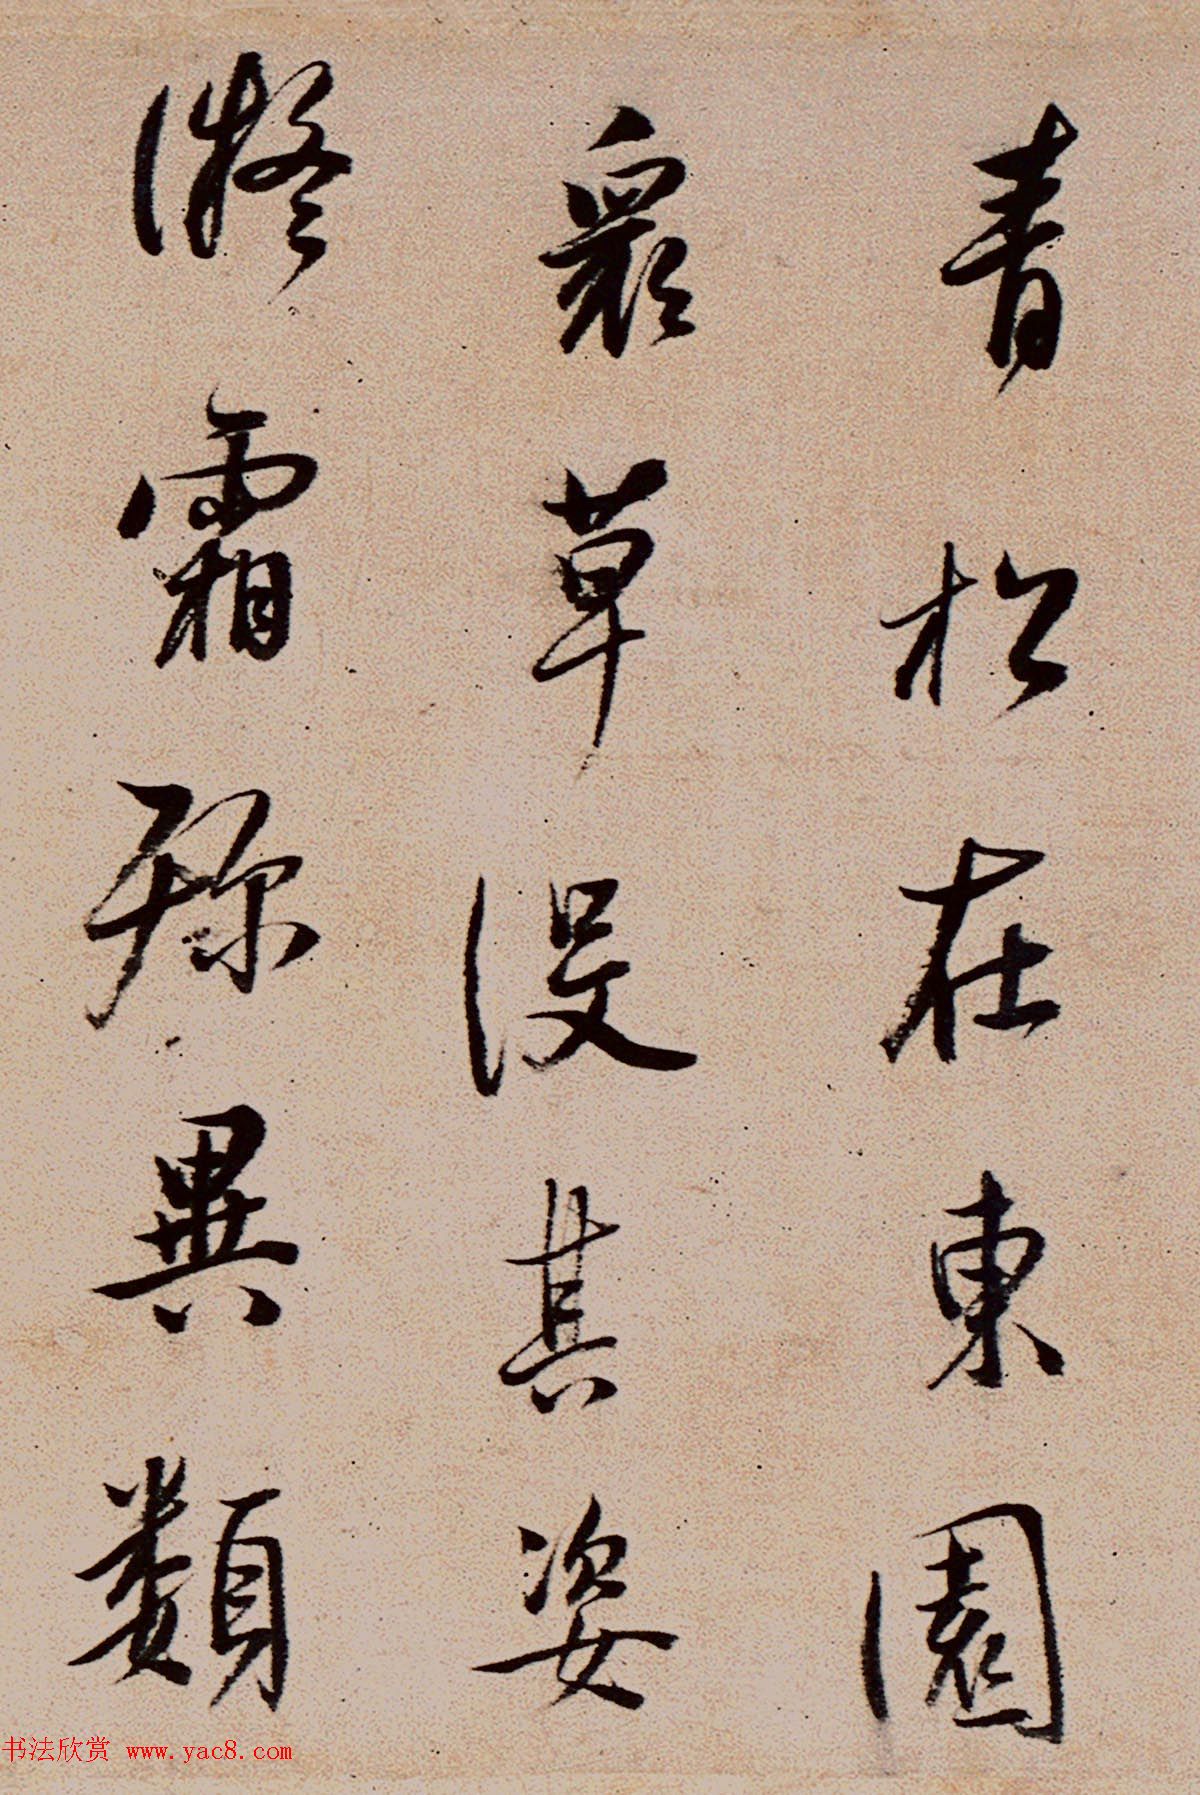 青松在東園
眾草沒其姿
凝霜殄異類
书法欣赏 www.yac8.com